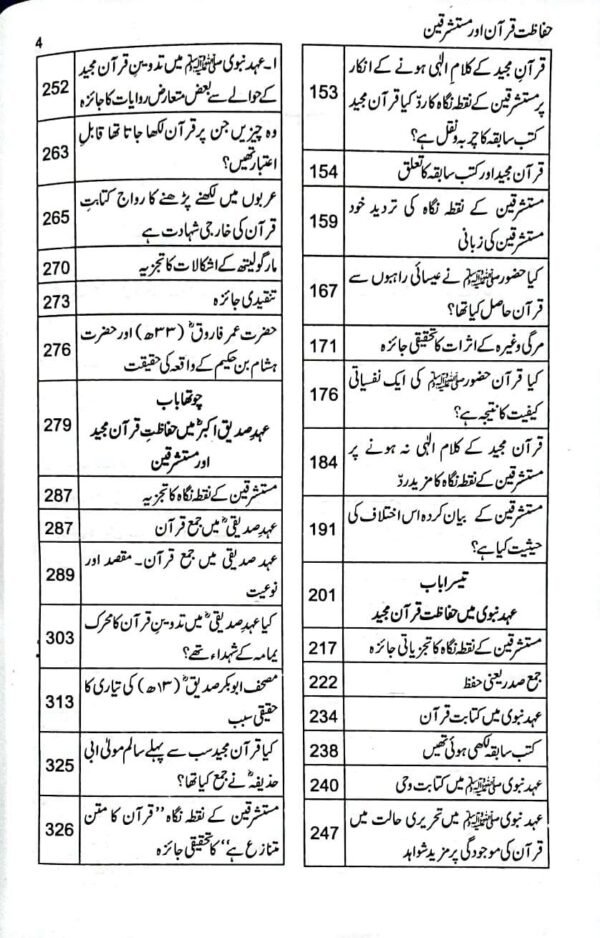 حفاظت قرآن اور مستشرقین
4
قرآن مجید کے کلامِ الٰہی ہونے کے انکار
پر مستشرقین کے نقطہ نگاہ کا ردّ کیا قرآن مجید
کتب سابقہ کا چربہ ونقل ہے؟
153
قرآن مجید اور کتب سابقہ کا تعلق
154
مستشرقین کے نقطہ نگاہ کی تردید خود
مستشرقین کی زبانی
159
کیا حضور صلی اللہ علیہ وسلم نے عیسائی راہبوں سے
قرآن حاصل کیا تھا؟
167
مرگی وغیرہ کے اثرات کا تحقیقی جائزہ
171
کیا قرآن حضور صلی اللہ علیہ وسلم کی ایک نفسیاتی
کیفیت کا نتیجہ ہے؟
176
قرآن مجید کے کلام الٰہی نہ ہونے پر
مستشرقین کے نقطہ نگاہ کا مزید ردّ
184
مستشرقین کے بیان کردہ اس اختلاف کی
حیثیت کیا ہے؟
191
تیسرا باب
عہد نبوی میں حفاظت قرآن مجید
201
مستشرقین کے نقطہ نگاہ کا تجزیاتی جائزہ
217
جمع صدر یعنی حفظ
222
عہد نبوی میں کتابت قرآن
234
کتب سابقہ لکھی ہوئی تھیں
238
عہد نبوی صلی اللہ علیہ وسلم میں کتابت وحی
240
عہد نبوی صلی اللہ علیہ وسلم میں تحریری حالت میں
قرآن کی موجودگی پر مزید شواہد
247
۱۔ عہد نبوی صلی اللہ علیہ وسلم میں تدوینِ قرآن مجید
کے حوالے سے بعض متعارض روایات کا جائزہ
252
وہ چیزیں جن پر قرآن لکھا جاتا تھا قابلِ
اعتبار تھیں؟
263
عربوں میں لکھنے پڑھنے کا رواج کتابتِ
قرآن کی خارجی شہادت ہے
265
مارگولیتھ کے اشکالات کا تجزیہ
270
تنقیدی جائزہ
273
حضرت عمر فاروقؓ (۳۳ھ) اور حضرت
ہشام بن حکیم کے واقعہ کی حقیقت
276
چوتھا باب
عہد صدیق اکبرؓ میں حفاظتِ قرآن مجید
اور مستشرقین
279
مستشرقین کے نقطہ نگاہ کا تجزیہ
287
عہدِ صدیقیؓ میں جمع قرآن
287
عہد صدیقی میں جمع قرآن۔ مقصد اور
نوعیت
289
کیا عہدِ صدیقیؓ میں تدوینِ قرآن کا محرک
یمامہ کے شہداء تھے؟
303
مصحف ابوبکر صدیقؓ (۱۳ھ) کی تیاری کا
حقیقی سبب
313
کیا قرآن مجید سب سے پہلے سالم مولیٰ ابی
حذیفہؓ نے جمع کیا تھا؟
325
مستشرقین کے نقطہ نگاہ "قرآن کا متن
متنازع ہے" کا تحقیقی جائزہ
326